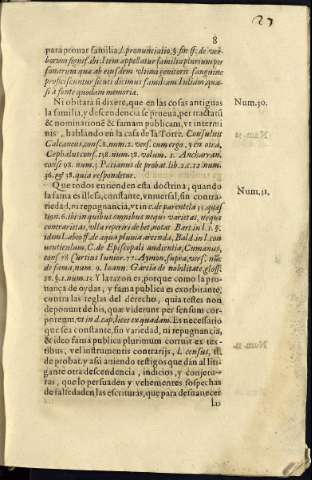 23
8
para prouar familia, l. pronuntiatio, §. fin. ff. de ver-
borum signif. ibi: Item appellatur familia plurium per-
sonarum quæ ab eiusdem vltimi genitoris sanguine
proficiscuntur sicuti dicimus familiam Iuliam quæ-
si à fonte quodam memoriæ.
Ni obitarà si dixere, que en las cosas antiguas
la familia, y descendencia se prueua, per tractatũ
& nominationẽ & famam publicam, vt in termi
nis, hablando en la casa de la Torre. Consuluit
Calcaneus, cons. 8. num. 2. vers. cum ergo, y en otra,
Cephalus cons. 158. num. 28. volum. 2. Ancharran.
cons. 98. num. 3. Patianus de probat. lib. 2. c. 23. num.
36. & 38. quia respondetur.
Que todos entienden esta doctrina, quando
la fama es illesa, constante, vniuersal, sin contra-
riedad, ni repugnancia, vt in c. de parentela 35. quæst
ion. 6. ibi: in quibus omnibus neque varietas, neque
contrarietas, vltra reperta debet notat Bart. in l. 1. §.
idem Labeo ff. de aqua pluuia arcenda, Bald. in l. con
uenticulum, C. de Episcopali audientia, Cumanus,
cons. 78. Curtius Iunior. 77. Aymon, supra, vers. illæ
de fama, num. 9. Ioann. Garcia de nobilitate, gloss.
18. §. 1. num. 15. Y la razon es, porque como la pro-
uança de oydas, y fama publica es exorbitante,
contra las reglas del derecho, quia testes non
deponunt de his, quæ viderunt per sensum cor-
poreum, vt in d. cap. licet ex quadam. Es necessario
que sea constante, sin variedad, ni repugnancia,
& ideo fama publica plurimum corruit ex tes-
tibus, vel instrumentis contrarijs, l. census, ff.
de probat. y assi auiendo testigos que dan al liti-
gante otra descendencia, indicios, y conjetu-
ras, que lo persuaden y vehementes sospechas
de falsedad en las escrituras, que para desuanecer
lo
Num. 30.
Num. 31.